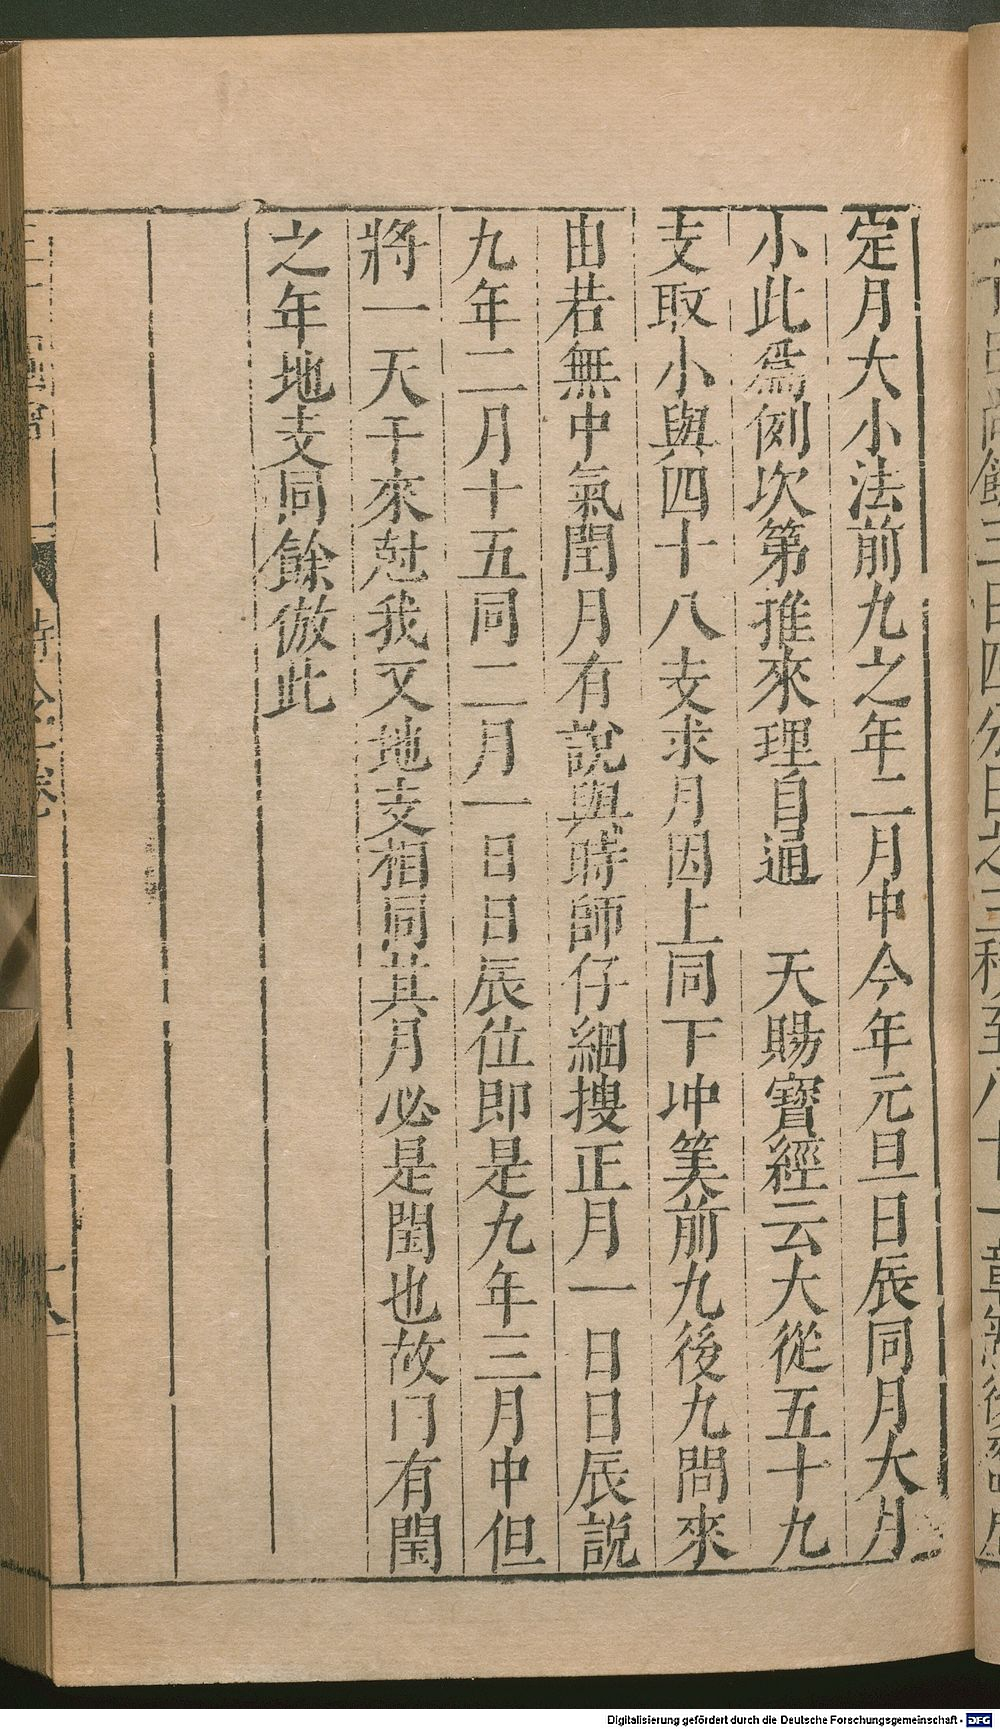 定月大小法前九之年二月中今年元旦日辰同月大月
小此爲例次第推來理自通　天賜寶經云大從五十九
支取小與四十八支求月因上同下冲筭前九後九問來
由若無中氣閏月有說與時師仔細搜正月一日日辰説
九年二月十五同二月一日日辰位即是九年三月中但
將一天干來尅我又地支相同其月必是閏也故門有閏
之年地支同餘倣此
Digitalisierung gefördert durch die Deutsche Forschungsgemeinschaft - DFG